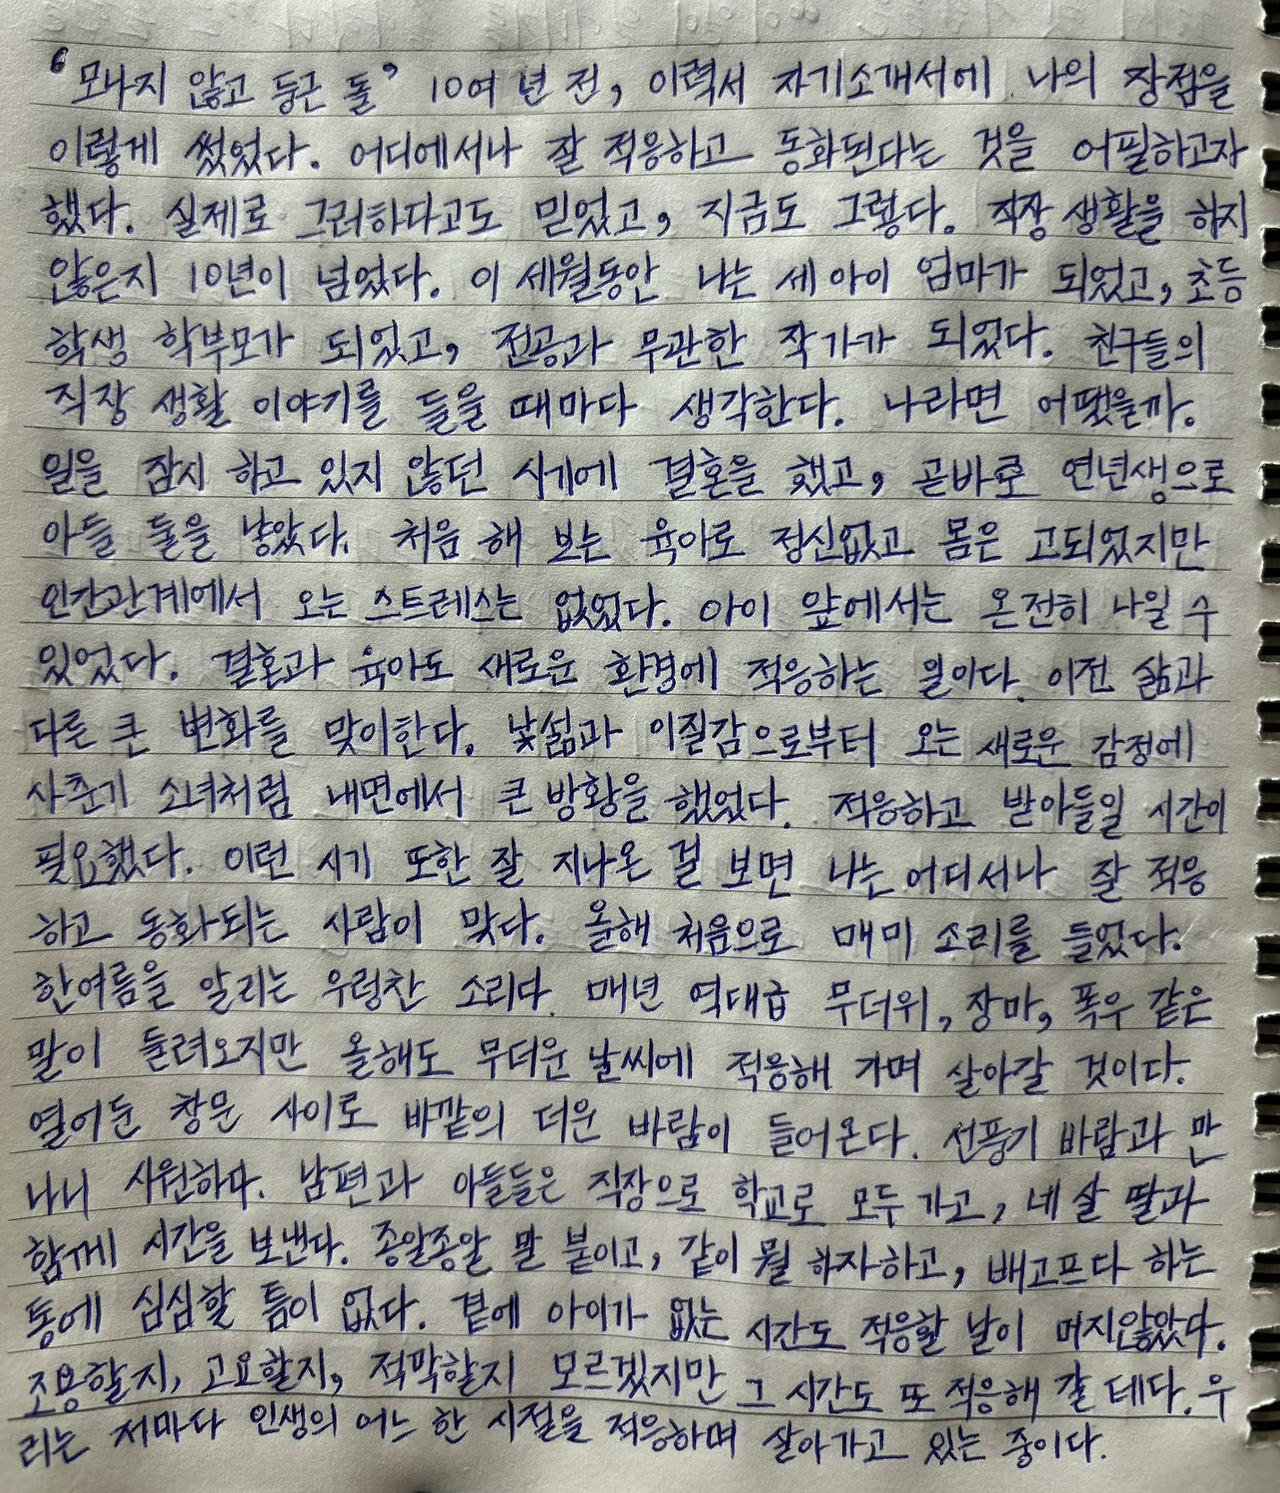 “모나지 않고 둥근 돌” 10여 년 전, 이력서 자기소개서에 나의 장점을
이렇게 썼었다. 어디에서나 잘 적응하고 동화된다는 것을 어필하고자
했다. 실제로 그러하다고도 믿었고, 지금도 그렇다. 직장 생활을 하지
않은지 10년이 넘었다. 이 세월동안 나는 세 아이 엄마가 되었고, 초등
학생 학부모가 되었고, 전공과 무관한 작가가 되었다. 친구들의
직장 생활 이야기를 들을 때마다 생각한다. 나라면 어땠을까.
일을 잠시 하고 있지 않던 시기에 결혼을 했고, 곧바로 연년생으로
아들 둘을 낳았다. 처음 해 보는 육아로 정신없고 몸은 고되었지만
인간관계에서 오는 스트레스는 없었다. 아이 앞에서는 온전히 나일 수
있었다. 결혼과 육아도 새로운 환경에 적응하는 일이다. 이전 삶과
다른 큰 변화를 맞이한다. 낯섦과 이질감으로부터 오는 새로운 감정에
사춘기 소녀처럼 내면에서 큰 방황을 했었다. 적응하고 받아들일 시간이
필요했다. 이런 시기 또한 잘 지나온 걸 보면 나는 어디서나 잘 적응
하고 동화되는 사람이 맞다. 올해 처음으로 매미 소리를 들었다.
한여름을 알리는 우렁찬 소리다. 매년 역대급 무더위, 장마, 폭우 같은
말이 들려오지만 올해도 무더운 날씨에 적응해 가며 살아갈 것이다.
열어둔 창문 사이로 바깥의 더운 바람이 들어온다. 선풍기 바람과 만
나니 시원하다. 남편과 아들들은 직장으로 학교로 모두 가고, 네 살 딸과
함께 시간을 보낸다. 종알종알 말 붙이고, 같이 뭘 하자하고, 배고프다 하는
통에 심심할 틈이 없다. 곁에 아이가 없는 시간도 적응할 날이 머지않았다.
조용할지, 고요할지, 적막할지 모르겠지만 그 시간도 또 적응해 갈 테다. 우
리는 저마다 인생의 어느 한 시절을 적응하며 살아가고 있는 중이다.